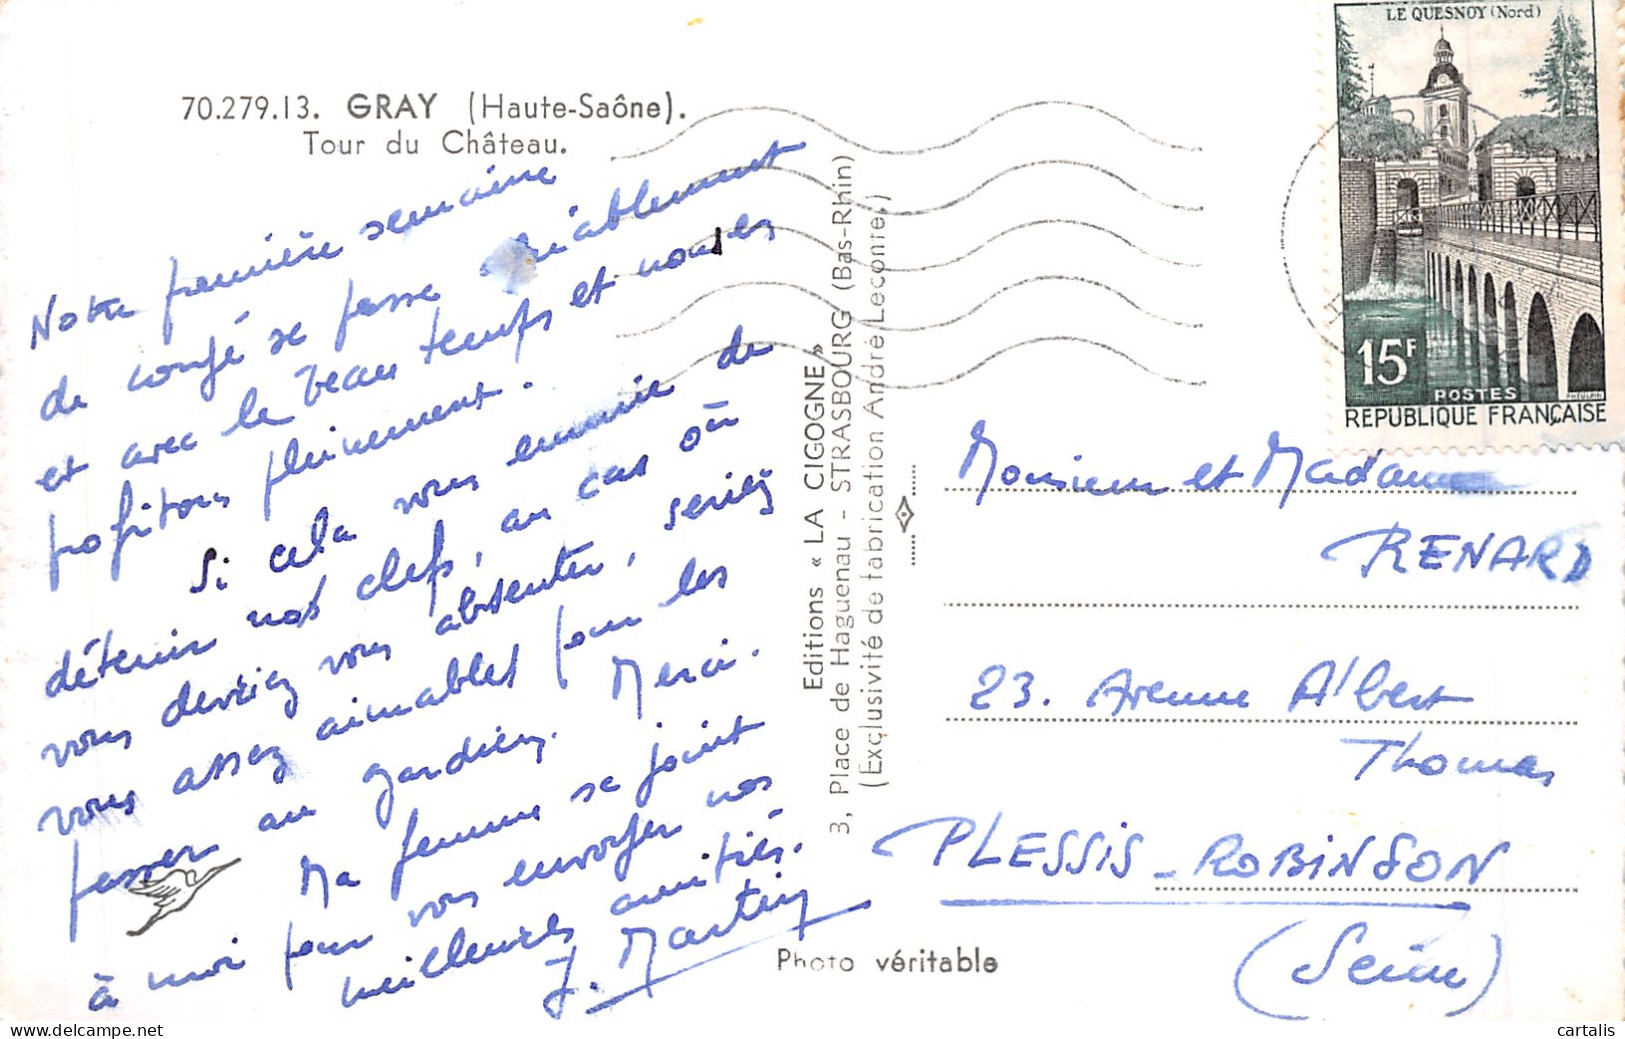 70.279.13. GRAY (Haute-Saône).
Tour du Château.
Notre première semaine
de congé se passe agréablement
et avec le beau temps et nous en
profitons pleinement.
Si cela vous ennuie de
détenir nos clefs, au cas où
vous devriez vous absenter, seriez
vous assez aimables pour les
passer au gardien. Merci.
Ma femme se joint
à moi pour vous envoyer nos
meilleures amitiés.
J. Martin
Editions « LA CIGOGNE »
3, Place de Haguenau - STRASBOURG (Bas-Rhin)
(Exclusivité de fabrication André Leconte.)
Photo véritable
LE QUESNOY (Nord)
15F
POSTES
RÉPUBLIQUE FRANÇAISE
Monsieur et Madame
RENARD
23. Avenue Albert
Thomas
PLESSIS-ROBINSON
(Seine)
cartalis